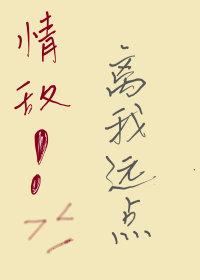 情敌!
离我远点